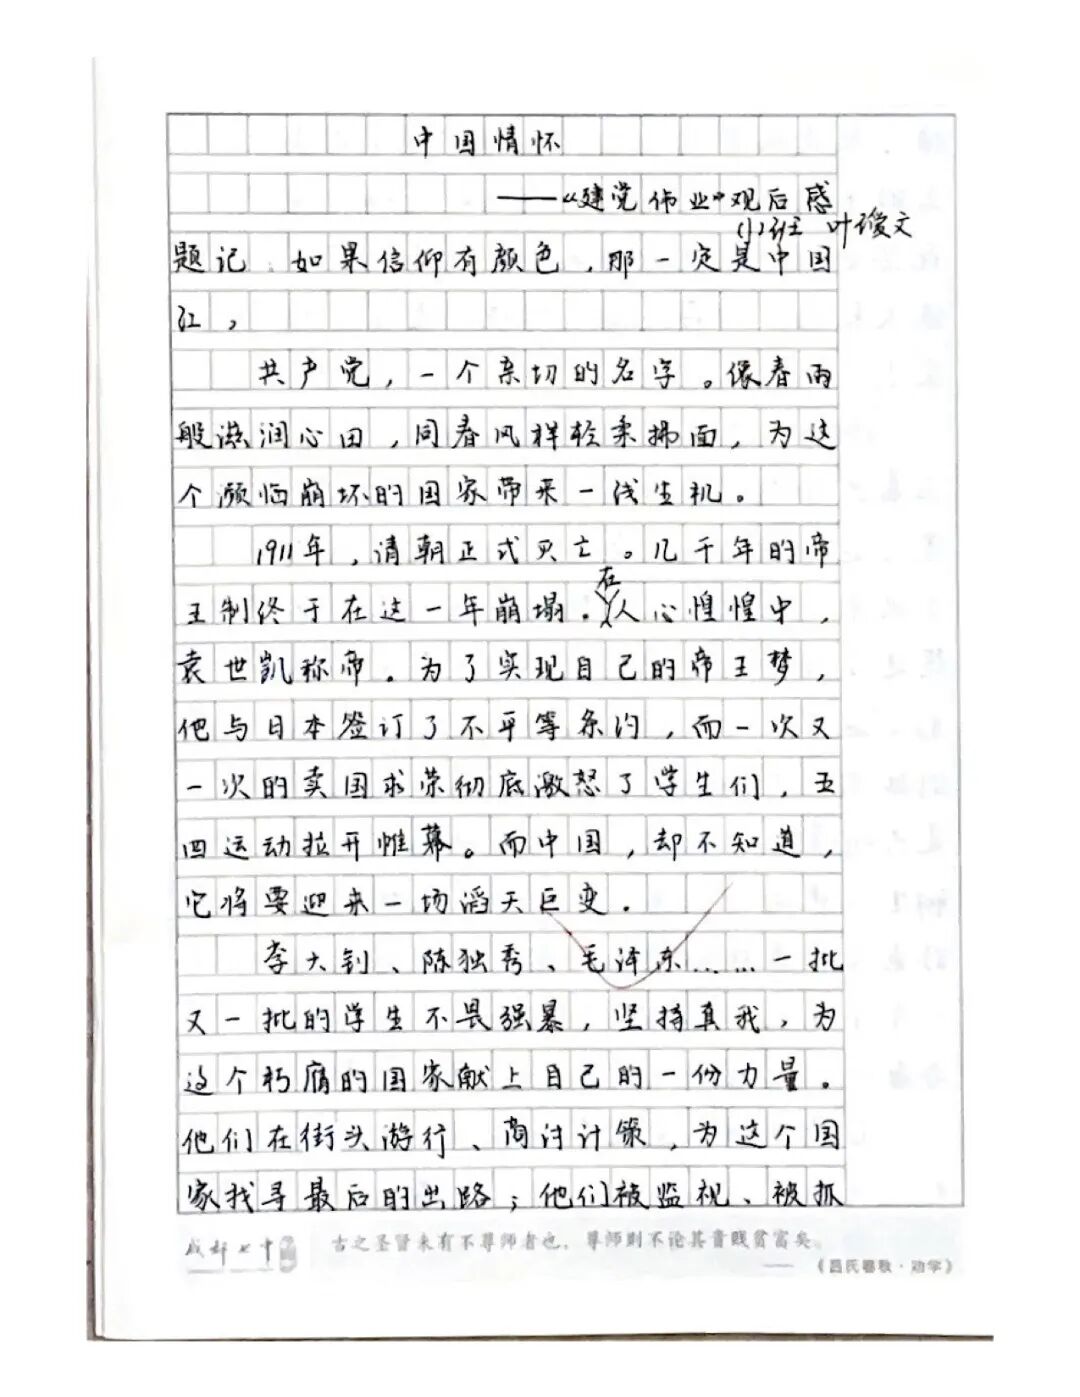 中国情怀
——“建党伟业”观后感
(1)班 叶瑷文
题记 如果信仰有颜色，那一定是中国
红，
共产党，一个亲切的名字。像春雨
般滋润心田，同春风样轻柔拂面，为这
个濒临崩坏的国家带来一线生机。
1911年，清朝正式灭亡。几千年的帝
王制终于在这一年崩塌。在人心惶惶中，
袁世凯称帝。为了实现自己的帝王梦，
他与日本签订了不平等条约，而一次又
一次的卖国求荣彻底激怒了学生们，五
四运动拉开帷幕。而中国，却不知道，
它将要迎来一场滔天巨变。
李大钊、陈独秀、毛泽东……一批
又一批的学生不畏强暴，坚持真我，为
这个朽腐的国家献上自己的一份力量。
他们在街头游行、商讨计策，为这个国
家找寻最后的出路；他们被监视、被抓
成都七中
古之圣贤未有不尊师者也，尊师则不论其贵贱贫富矣。
——《吕氏春秋·劝学》